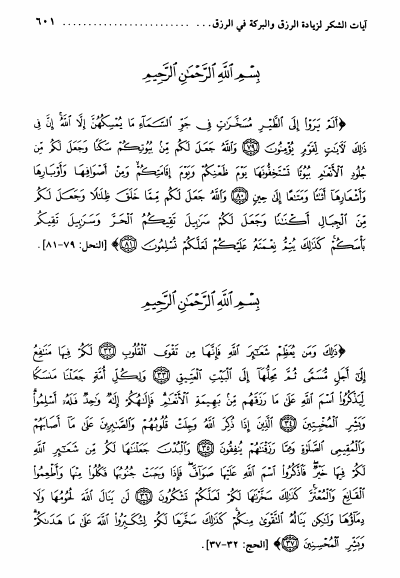 آيات الشكر لزيادة الرزق والبركة في الرزق... ٦٠١
بِسْمِ اللَّهِ الرَّحْمَٰنِ الرَّحِيمِ
﴿أَلَمْ يَرَوْا إِلَى الطَّيْرِ مُسَخَّرَاتٍ فِي جَوِّ السَّمَاءِ مَا يُمْسِكُهُنَّ إِلَّا اللَّهُ إِنَّ فِي
ذَلِكَ لَآيَاتٍ لِقَوْمٍ يُؤْمِنُونَ ﴿٧٩﴾ وَاللَّهُ جَعَلَ لَكُم مِّنْ بُيُوتِكُمْ سَكَنًا وَجَعَلَ لَكُم مِّن
جُلُودِ الْأَنْعَامِ بُيُوتًا تَسْتَخِفُّونَهَا يَوْمَ ظَعْنِكُمْ وَيَوْمَ إِقَامَتِكُمْ وَمِنْ أَصْوَافِهَا وَأَوْبَارِهَا
وَأَشْعَارِهَا أَثَاثًا وَمَتَاعًا إِلَى حِينٍ ﴿٨٠﴾ وَاللَّهُ جَعَلَ لَكُم مِّمَّا خَلَقَ ظِلَالًا وَجَعَلَ لَكُم
مِّنَ الْجِبَالِ أَكْنَانًا وَجَعَلَ لَكُمْ سَرَابِيلَ تَقِيكُمُ الْحَرَّ وَسَرَابِيلَ تَقِيكُم
بَأْسَكُمْ كَذَلِكَ يُتِمُّ نِعْمَتَهُ عَلَيْكُمْ لَعَلَّكُمْ تُسْلِمُونَ ﴿٨١﴾﴾ [النحل: ٧٩-٨١].
بِسْمِ اللَّهِ الرَّحْمَٰنِ الرَّحِيمِ
﴿ذَلِكَ وَمَن يُعَظِّمْ شَعَائِرَ اللَّهِ فَإِنَّهَا مِن تَقْوَى الْقُلُوبِ ﴿٣٢﴾ لَكُمْ فِيهَا مَنَافِعُ
إِلَى أَجَلٍ مُّسَمًّى ثُمَّ مَحِلُّهَا إِلَى الْبَيْتِ الْعَتِيقِ ﴿٣٣﴾ وَلِكُلِّ أُمَّةٍ جَعَلْنَا مَنسَكًا
لِّيَذْكُرُوا اسْمَ اللَّهِ عَلَى مَا رَزَقَهُم مِّن بَهِيمَةِ الْأَنْعَامِ فَإِلَهُكُمْ إِلَهٌ وَاحِدٌ فَلَهُ أَسْلِمُوا
وَبَشِّرِ الْمُخْبِتِينَ ﴿٣٤﴾ الَّذِينَ إِذَا ذُكِرَ اللَّهُ وَجِلَتْ قُلُوبُهُمْ وَالصَّابِرِينَ عَلَى مَا أَصَابَهُمْ
وَالْمُقِيمِي الصَّلَاةِ وَمِمَّا رَزَقْنَاهُمْ يُنفِقُونَ ﴿٣٥﴾ وَالْبُدْنَ جَعَلْنَاهَا لَكُم مِّن شَعَائِرِ اللَّهِ
لَكُمْ فِيهَا خَيْرٌ فَاذْكُرُوا اسْمَ اللَّهِ عَلَيْهَا صَوَافَّ فَإِذَا وَجَبَتْ جُنُوبُهَا فَكُلُوا مِنْهَا وَأَطْعِمُوا
الْقَانِعَ وَالْمُعْتَرَّ كَذَلِكَ سَخَّرْنَاهَا لَكُمْ لَعَلَّكُمْ تَشْكُرُونَ ﴿٣٦﴾ لَن يَنَالَ اللَّهَ لُحُومُهَا وَلَا
دِمَاؤُهَا وَلَكِن يَنَالُهُ التَّقْوَى مِنكُمْ كَذَلِكَ سَخَّرَهَا لَكُمْ لِتُكَبِّرُوا اللَّهَ عَلَى مَا هَدَاكُمْ
وَبَشِّرِ الْمُحْسِنِينَ ﴿٣٧﴾﴾ [الحج: ٣٢-٣٧].